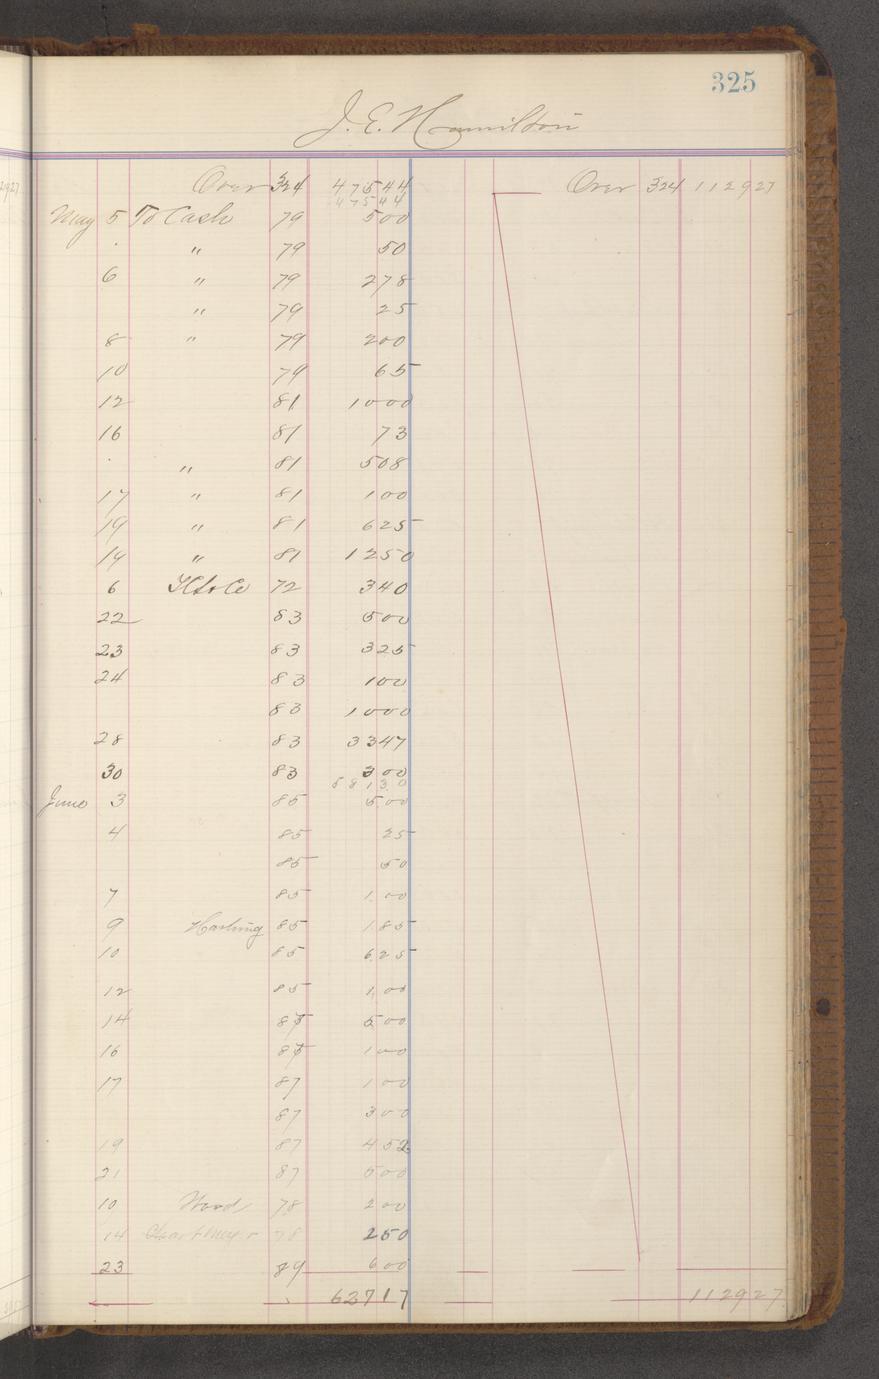 325
J. E. Hamilton
Over 324 47544 Over 324 112927
47544
May 5 To Cash 79 500
" 79 50
6 " 79 278
" 79 25
8 " 79 200
10 79 65
12 81 1000
16 81 73
" 81 508
17 " 81 100
19 " 81 625
14 " 81 1250
6 72 340
22 83 500
23 83 325
24 83 100
83 1000
28 83 3347
30 83 300
58130
June 3 85 500
4 85 25
85 50
7 85 100
9 85 185
10 85 625
12 85 100
14 87 500
16 87 100
17 87 100
87 300
19 87 452
21 87 500
10 Wood 78 200
14 78 250
23 89 600
63717 112927